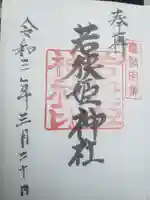 奉拝
若狭姫神社
令和三年三月二十日